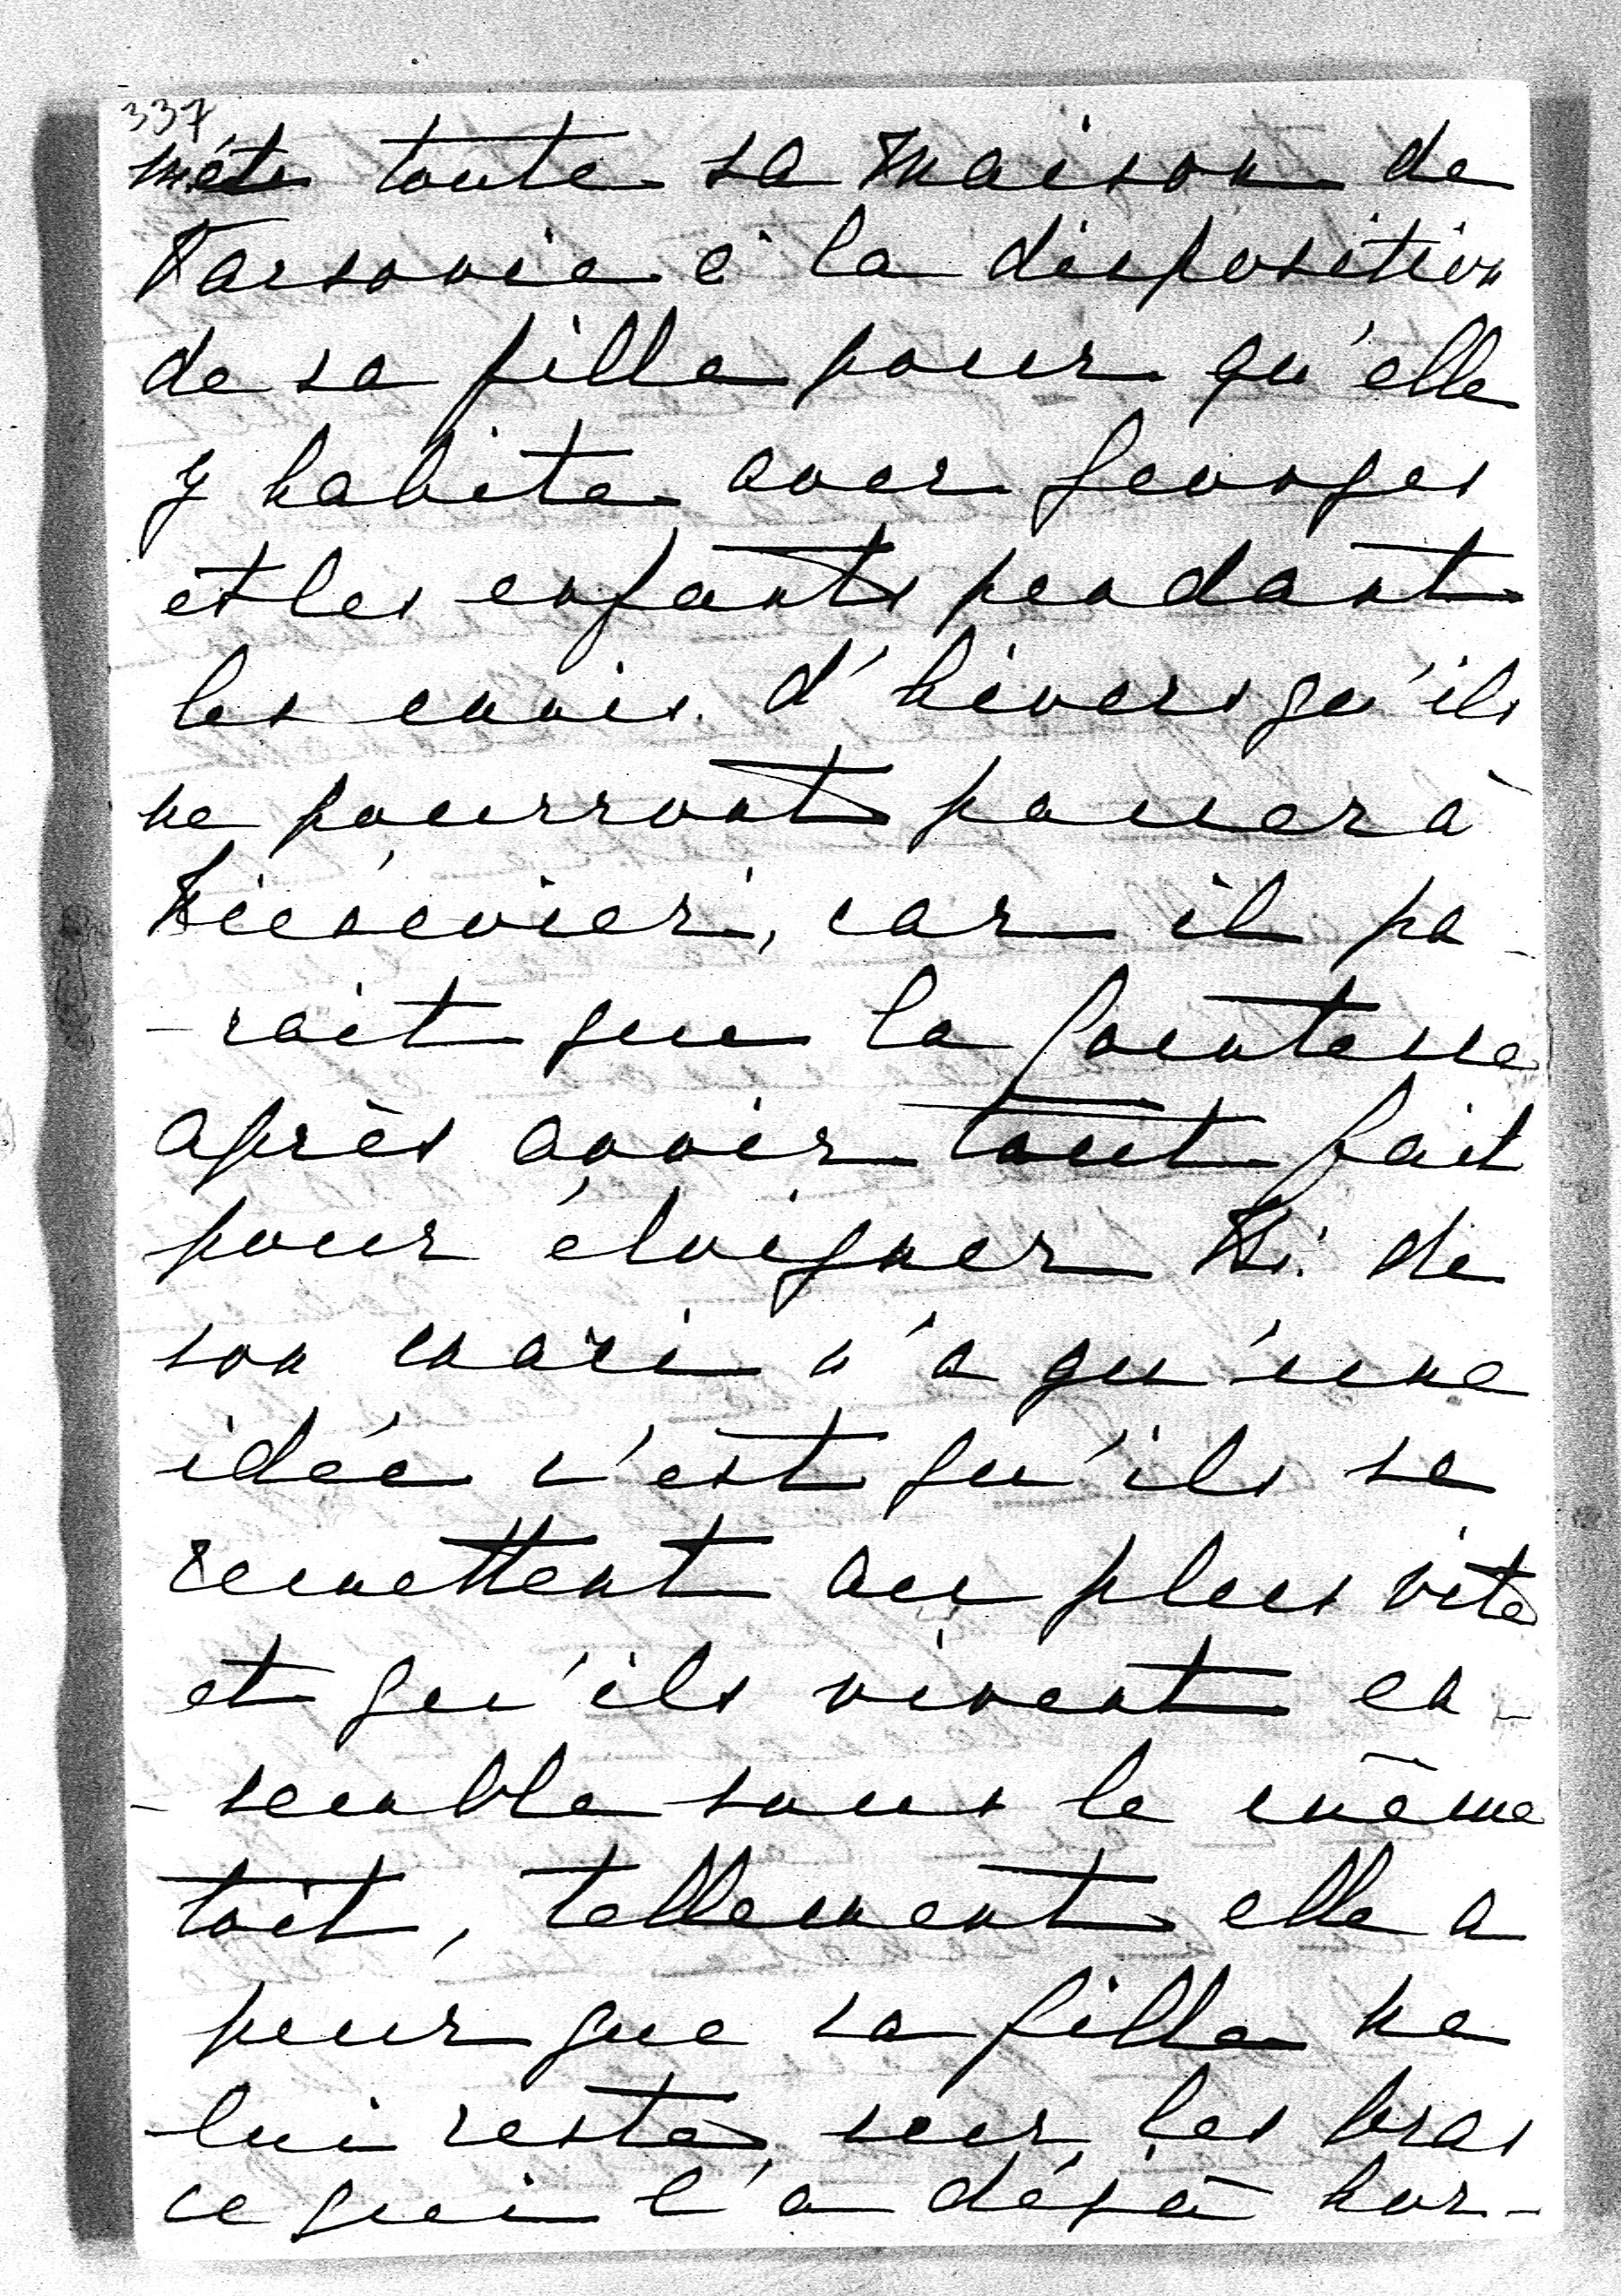 337
mèts toute sa maison de
Varsovie à la disposition
de sa fille pour qu'elle
y habite avec Georges
et les enfants pendant
les mois d'hivers qu'ils
ne pourront passer à
car il pa-
-rait que la Comtesse
après avoir tout fait
pour éloigner Bi. de
son mari n'a qu'une
idée c'est qu'ils se
remettent au plus vite
et qu'ils vivent en-
-semble sous le même
toit, tellement elle a
peur que sa fille ne
lui reste sur les bras
ce qui l'a déjà hor-